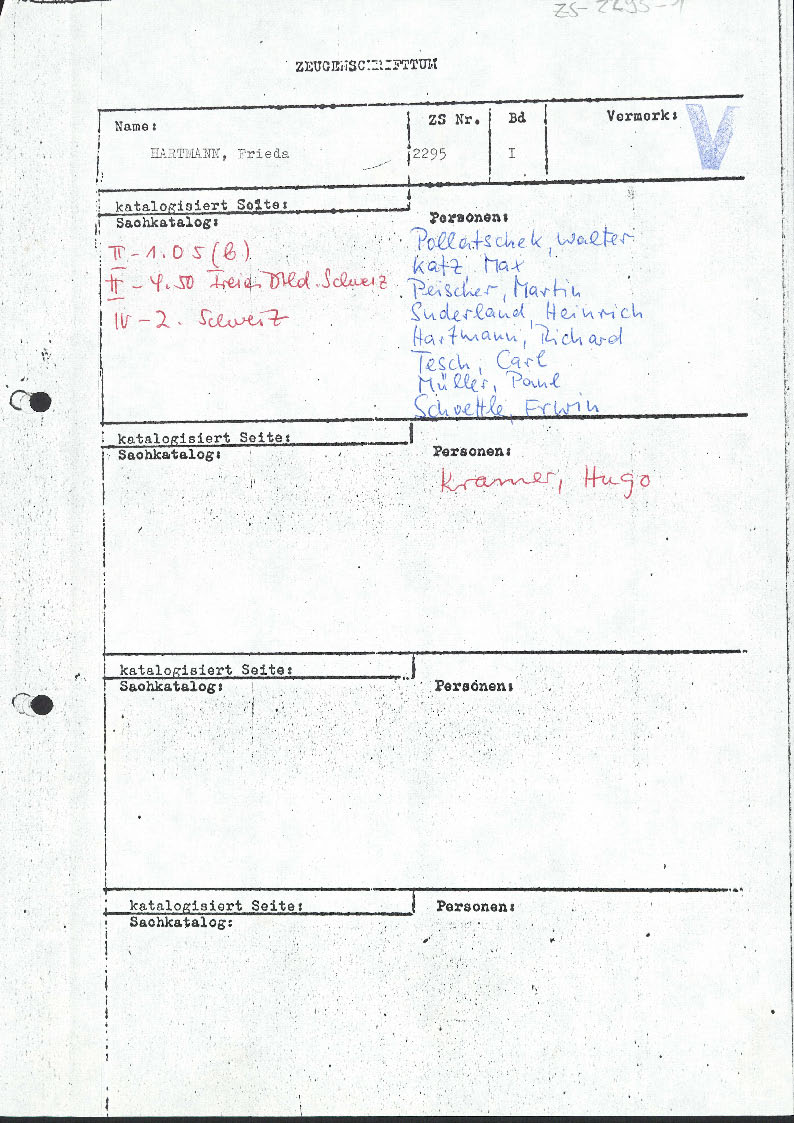 ZS-2295-1
ZEUGENSCHRIFTTUM
Name: ZS Nr. Bd Vermerk: V
HARTMANN, Frieda 2295 I
katalogisiert Seite:
Sachkatalog: Personen:
II - 1.05 (b)
II - 4.50 Freies Dtld. Schweiz
IV - 2. Schweiz
Pollatschek, Walter
Katz, Max
Peischer, Martin
Suderland, Heinrich
Hartmann, Richard
Tesch, Carl
Müller, Paul
Schoettle, Erwin
katalogisiert Seite:
Sachkatalog: Personen:
Kramer, Hugo
katalogisiert Seite:
Sachkatalog: Personen:
katalogisiert Seite: Personen:
Sachkatalog: